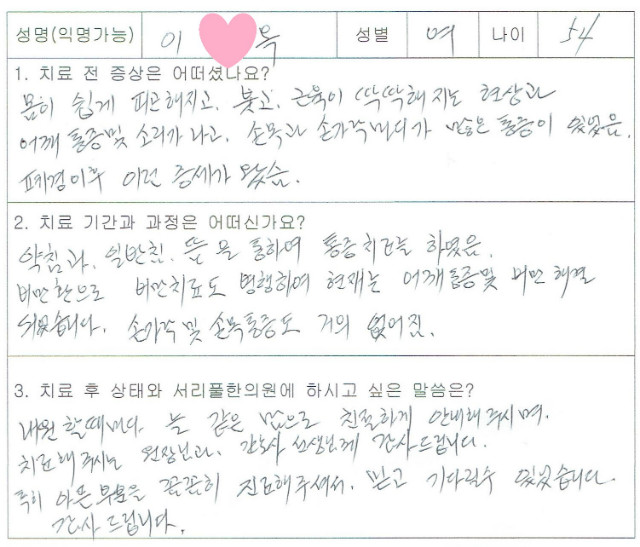 성명(익명가능) 이 욱 성별 여 나이 54
1. 치료 전 증상은 어떠셨나요?
몸이 쉽게 피곤해지고, 붓고, 근육이 딱딱해지는 현상과
어깨 통증및 소리가 나고, 손목과 손가락마디가 많은 통증이 있었음.
폐경이후 이런 증세가 왔음.
2. 치료 기간과 과정은 어떠신가요?
약침과, 일반침, 뜸 을 통하여 통증치료를 하였음.
비만환으로 비만치료도 병행하여 현재는 어깨통증및 비만 해결
되었습니다. 손가락 및 손목통증도 거의 없어짐.
3. 치료 후 상태와 서리풀한의원에 하시고 싶은 말씀은?
내원 할때마다 늘 같은 맘으로 친절하게 안내해주시며,
치료해 주시는 원장님과, 간호사 선생님께 감사드립니다.
특히 아픈부분을 꼼꼼히 진료해주셔서, 믿고 기다릴수 있었습니다.
감사 드립니다.